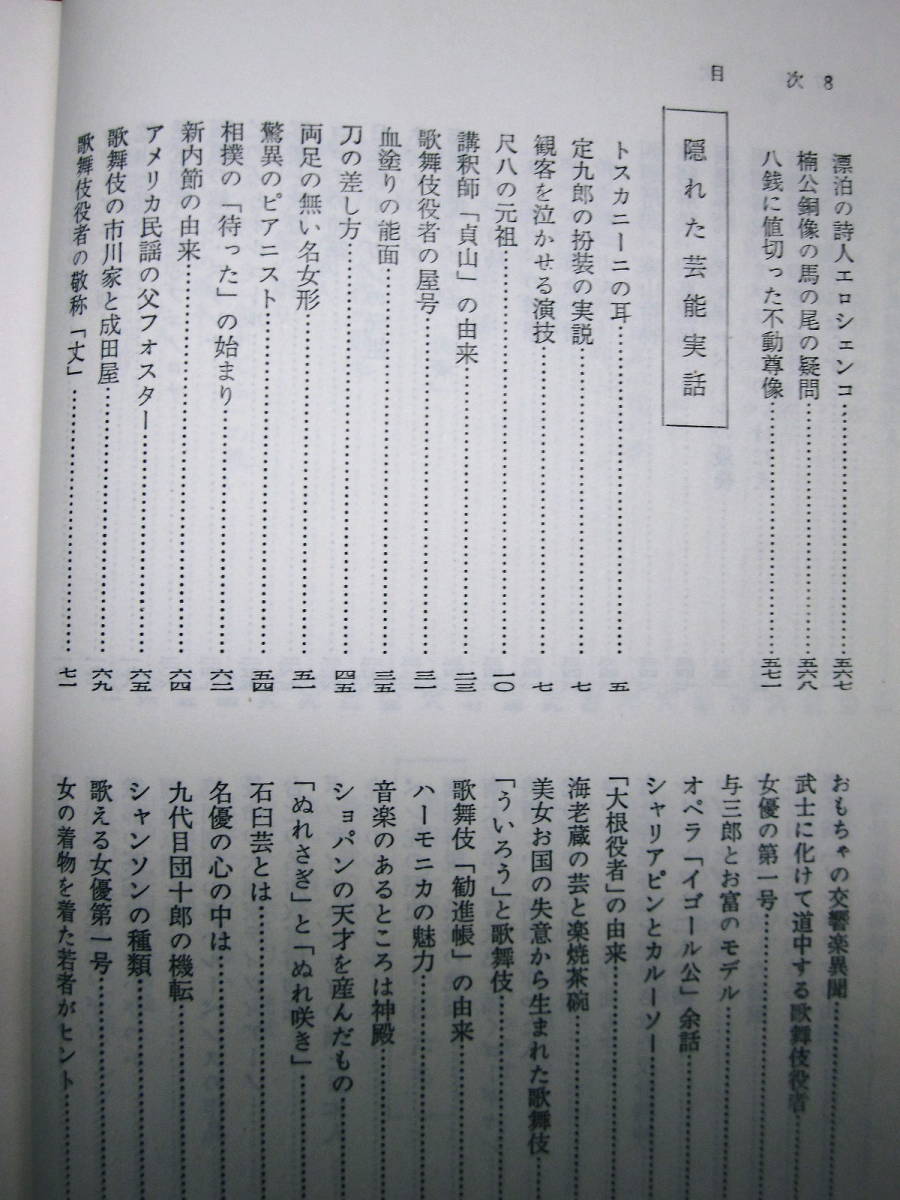 目次 8
漂泊の詩人エロシェンコ……………五六七
楠公銅像の馬の尾の疑問……………五六八
八銭に値切った不動尊像……………五七一
隠れた芸能実話
トスカニーニの耳……………五
定九郎の扮装の実説……………七
観客を泣かせる演技……………七
尺八の元祖……………一〇
講釈師「貞山」の由来……………二三
歌舞伎役者の屋号……………三一
血塗りの能面……………三五
刀の差し方……………四五
両足の無い名女形……………五一
驚異のピアニスト……………五四
相撲の「待った」の始まり……………六二
新内節の由来……………六四
アメリカ民謡の父フォスター……………六五
歌舞伎の市川家と成田屋……………六九
歌舞伎役者の敬称「丈」……………七一
おもちゃの交響楽異聞……………
武士に化けて道中する歌舞伎役者……
女優の第一号……………
与三郎とお富のモデル……………
オペラ「イゴール公」余話……………
シャリアピンとカルーソー……………
「大根役者」の由来……………
海老蔵の芸と楽焼茶碗……………
美女お国の失意から生まれた歌舞伎……
「ういろう」と歌舞伎……………
歌舞伎「勧進帳」の由来……………
ハーモニカの魅力……………
音楽のあるところは神殿……………
ショパンの天才を産んだもの……………
「ぬれさぎ」と「ぬれ咲き」……………
石臼芸とは……………
名優の心の中は……………
九代目団十郎の機転……………
シャンソンの種類……………
歌える女優第一号……………
女の着物を着た若者がヒント……………